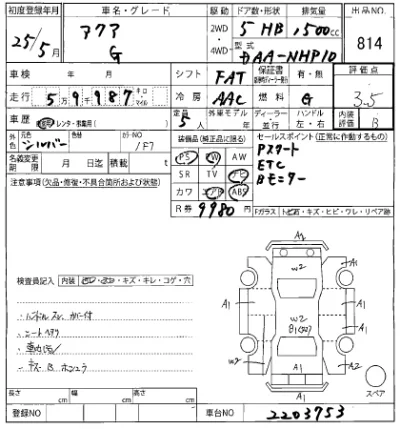 初度登録年月
25/5月
車名・グレード
アクア
G
駆動
2WD・4WD
ドア数・形状
5 HB
排気量
1,500cc
型式
DAA-NHP10
出品NO.
814
車検 年 月
シフト FAT
保証書 有・無
評価点
3.5
走行 5万9987 キロ・マイル
冷房 AAC
燃料 G
車歴 レンタ・
定員 5人
外車モデル 年
ディーラー・並行
ハンドル 左・右
内装評価 B
外色 元色 シルバー
色替
カラーNO 1F7
装備品(純正品に限る)
PS PW AW
SR TV ナビ
カワ エアB ABS
セールスポイント(正常に作動するもの)
Pスタート
ETC
Bモニター
名義変更期限 月 日迄
積載 t
R券 9980円
注意事項(欠品・修復・不具合箇所および状態)
Fガラス トビ石・キズ・ヒビ・ワレ・リペア跡
検査員記入 内装 ・キズ・キレ・コゲ・穴
ハンドル スレ カバー付
シート
車内
A2
A1 W2 A1
A1 A1
W2
W2 A1 A2
A1
スペア
長さ cm 幅 cm 高さ cm
登録NO
車台NO 2203753